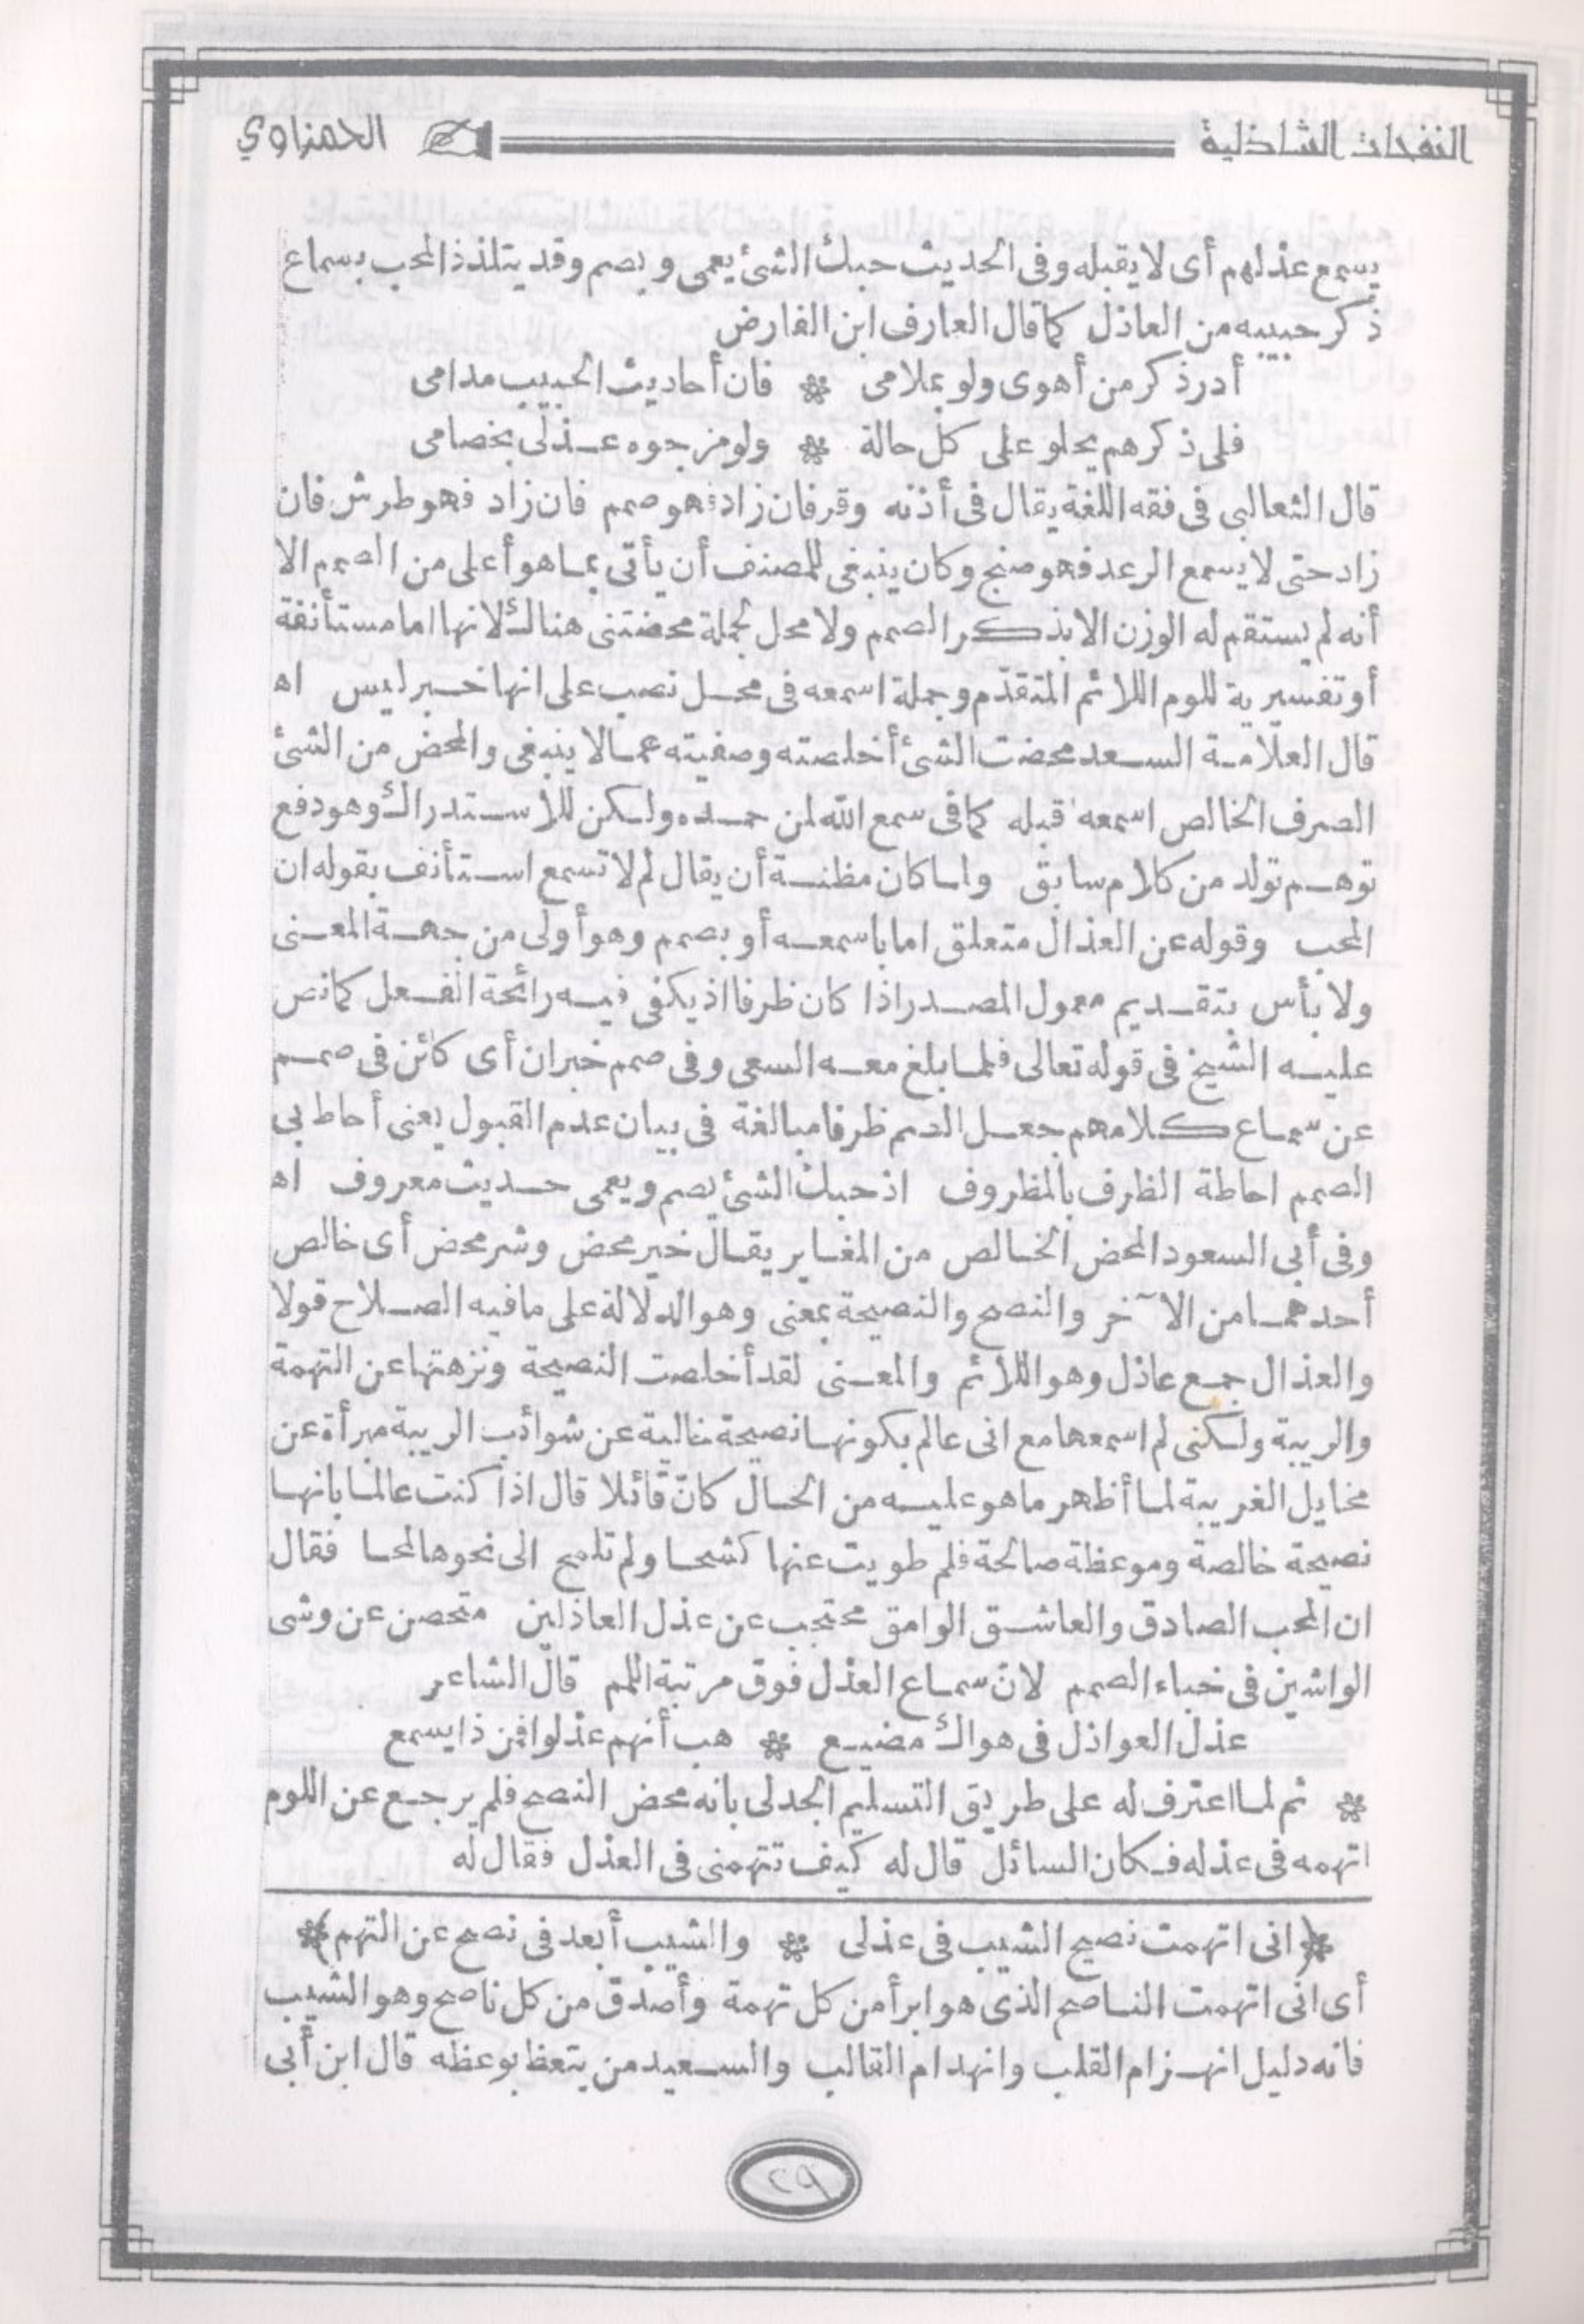 النفحات الشاذلية الحمزاوي
يسمع عذلهم أى لا يقبله وفى الحديث حبك الشئ يعمى ويصم وقد يتلذذ المحب بسماع
ذكر حبيبه من العاذل كما قال العارف ابن الفارض
أدر ذكر من أهوى ولو بملامى * فان أحاديث الحبيب مدامى
فلى ذكرهم يحلو على كل حالة * ولو مزجوه عذلى بخصامى
قال الثعالبى فى فقه اللغة يقال فى أذنه وقر فان زاد فهو صمم فان زاد فهو طرش فان
زاد حتى لا يسمع الرعد فهو صنج وكان ينبغى للمصنف أن يأتى بما هو أعلى من الصمم الا
أنه لم يستقم له الوزن الا بذكر الصمم ولا محل لجملة محضتنى هنالك لانها اما مستأنفة
أو تفسيرية للوم اللائم المتقدم وجملة اسمعه فى محل نصب على انها خبر ليس اه
قال العلامة السعد محضت الشئ أخلصته وصفيته عما لا ينبغى والمحض من الشئ
الصرف الخالص اسمعه قبله كما فى سمع الله لمن حمده ولكن للاستدراك وهو دفع
توهم تولد من كلام سابق ولما كان مظنة أن يقال لم لا تسمع استأنف بقوله ان
المحب وقوله عن العذال متعلق اما باسمعه أو بصمم وهو أولى من جهة المعنى
ولا بأس بتقديم معمول المصدر اذا كان ظرفا اذ يكفى فيه رائحة الفعل كما نص
عليه الشيخ فى قوله تعالى فلما بلغ معه السعى وفى صمم خبر ان أى كائن فى صمم
عن سماع كلامهم جعل الصمم ظرفا مبالغة فى بيان عدم القبول يعنى أحاط بى
الصمم احاطة الظرف بالمظروف اذ حبك الشئ يصم ويعمى حديث معروف اه
وفى أبى السعود المحض الخالص من المغاير يقال خير محض وشر محض أى خالص
أحدهما من الآخر والنصح والنصيحة بمعنى وهو الدلالة على ما فيه الصلاح قولا
والعذال جمع عاذل وهو اللائم والمعنى لقد أخلصت النصيحة ونزهتها عن التهمة
والريبة ولكنى لم اسمعها مع انى عالم بكونها نصيحة خالية عن شوائب الريبة مبرأة عن
مخايل الغريبة لما أظهر ما هو عليه من الحال كان قائلا قال اذا كنت عالما بانها
نصيحة خالصة وموعظة صالحة فلم طويت عنها كشحا ولم تلمح الى نحوها لمحا فقال
ان المحب الصادق والعاشق الوامق محتجب عن عذل العاذلين متحصن عن وشى
الواشين فى خباء الصمم لان سماع العذل فوق مرتبة اللمم قال الشاعر
عذل العواذل فى هواك مضيع * هب أنهم عذلوا فمن ذا يسمع
* ثم لما اعترف له على طريق التسليم الجدلى بانه محض النصح فلم يرجع عن اللوم
اتهمه فى عذله فكان السائل قال له كيف تتهمنى فى العذل فقال له
*(انى اتهمت نصيح الشيب فى عذلى * والشيب أبعد فى نصح عن التهم)*
أى انى اتهمت الناصح الذى هو ابرأ من كل تهمة وأصدق من كل ناصح وهو الشيب
فانه دليل انهزام القلب وانهدام القالب والسعيد من يتعظ بوعظه قال ابن أبى
٢٩